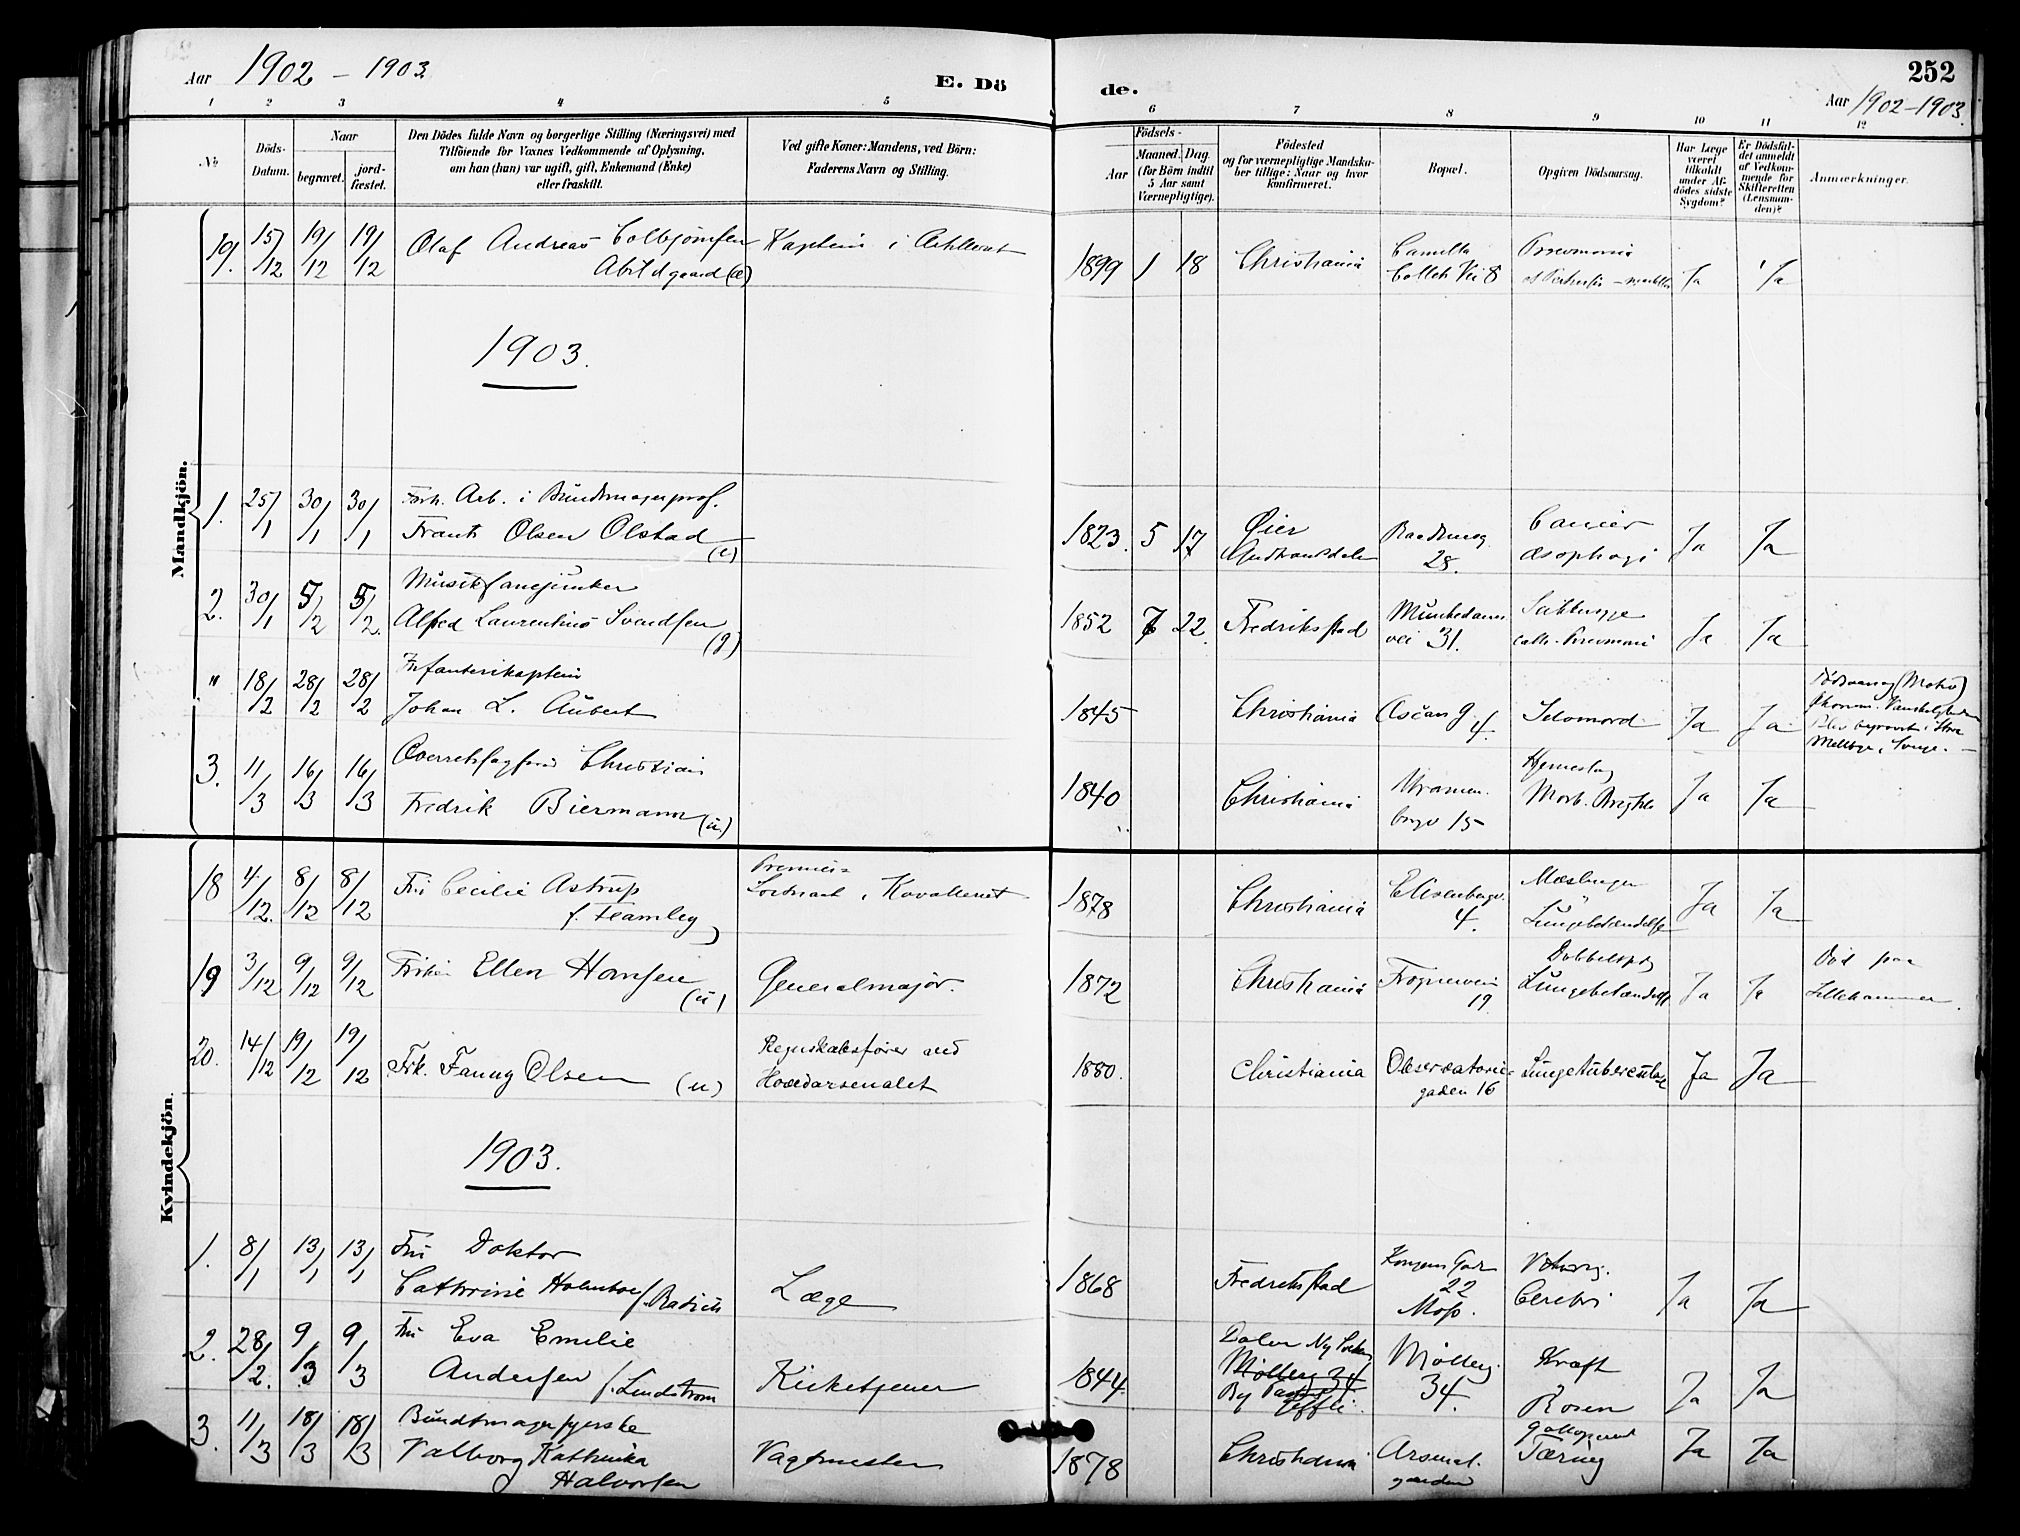 Aar 1902 - 1903
E. Dö
de.
252
Aar 1902-1903.
1 2 3 4 5
6 7 8 9 10 11 12
№
Döds-
Datum.
Naar
begravet.
jord-
fæstet.
Den Dödes fulde Navn og borgerlige Stilling (Næringsvei) med
Tilföiende for Voxnes Vedkommende af Oplysning,
om han (hun) var ugift, gift, Enkemand (Enke)
eller fraskilt.
Ved gifte Koner: Mandens, ved Börn:
Faderens Navn og Stilling.
Födsels-
Aar
Maaned. Dag
(for Börn indtil
5 Aar samt
Værnepligtige).
Födested
og for værnepligtige Mandska-
ber tillige: Naar og hvor
konfirmeret.
Bopæl.
Opgiven Dödsaarsag.
Har Læge
været
tilkaldt
under Af-
dödes sidste
Sygdom?
Er Dödsfal-
det anmeldt
af Vedkom-
mende for
Skifteretten
(Lensman-
den)?
Anmærkninger.
Mandkjön.
19. 15/12 19/12 19/12 Olaf Andreas Colbjørnsen
Abildgaard
Kaptein i Artilleriet
1899 1 18 Christiania
Camilla
Collets Vei 8
Pneumonia
Ja Ja
1903.
1. 25/1 30/1 30/1 Forh. Arb. i Bundtmagerprof.
Frants Olsen Olstad
(e)
1823. 5 17 Øier
Gudbrandsdalen
Raadhusg.
28.
Cancer
æsophagi
Ja Ja
2. 30/1 5/2 5/2. Musikfanejunker
Alfred Laurentius Svendsen
(g)
1852 7 22. Fredrikstad
Munkedams
vei 31.
Sukkersyge
Ja Ja
" 18/2 28/2 28/2 Infanterikaptein
Johan L. Aubert
1845 Christiania
Oscars g. 4.
Selvmord
Ja Ja
Dødsaarsag (Motiv)
Økonom. Vanskeligheder
Blev begravet i Store
3. 11/3 16/3 16/3 Overretssagfører Christian
Fredrik Biermann (u)
1840 Christiania
15
Hjerneslag
Morb. Brightii
Ja Ja
Kvindekjön.
18 4/12. 8/12 8/12 Fru Cecilie Astrup
f. Fearnley
Premier-
Løitnant i Kavalleriet
1878 Christiania
Elisenbergv.
4.
Mæslinger
Lungebetændelse
Ja Ja
19 3/12 9/12 9/12 Frøken Ellen Hansen
(u)
Generalmajor.
1872 Christiania
Frognervei
19.
Dobbeltsidig
Lungebetændelse
Ja Ja
Død paa
Lillehammer.
20. 14/12 19/12 19/12 Frk. Fanny Olsen (u)
Regnskabsfører ved
Hovedarsenalet
1880. Christiania
Observatorie-
gaden 16
Lungetuberculose
Ja Ja
1903.
1. 8/1 13/1 13/1 Fru Doktor
Cathrine Holmboe f. Radich
Læge
1868 Fredrikstad
Kongens Gade
22
Moss.
Cerebri
Ja Ja
2. 28/2. 9/3 9/3 Fru Eva Emilie
Andersen f. Lindstrøm
Kirketjener
1844.
Møllerg 34
Møllerg.
34.
Kræft
Ja Ja
3. 11/3 18/3 18/3 Bundtmagersyerske
Valborg Kathinka
Halvorsen
Vagtmester
1878 Christiania
Arsenal.
gaarden
Rosen
galloperende
Tæring
Ja Ja